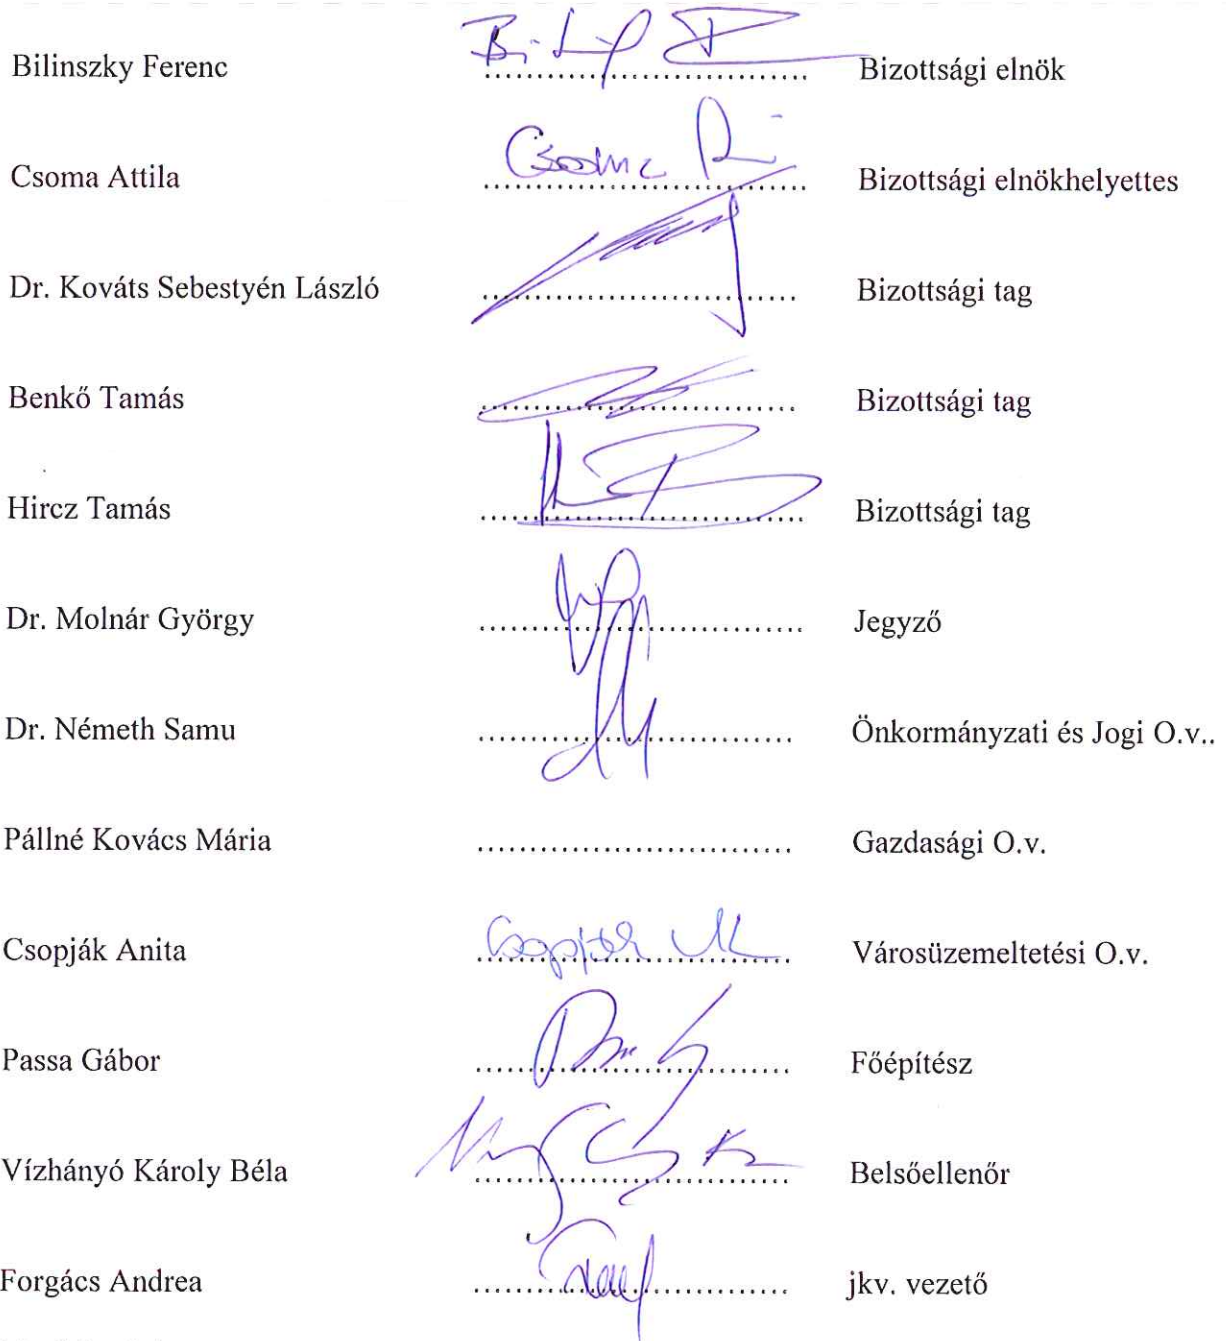 Bilinszky Ferenc ................................ Bizottsági elnök
Csoma Attila Csoma ................................ Bizottsági elnökhelyettes
Dr. Kováts Sebestyén László ................................ Bizottsági tag
Benkő Tamás ................................ Bizottsági tag
Hircz Tamás ................................ Bizottsági tag
Dr. Molnár György ................................ Jegyző
Dr. Németh Samu ................................ Önkormányzati és Jogi O.v..
Pállné Kovács Mária ................................ Gazdasági O.v.
Csopják Anita Csopják ................................ Városüzemeltetési O.v.
Passa Gábor ................................ Főépítész
Vízhányó Károly Béla ................................ Belsőellenőr
Forgács Andrea ................................ jkv. vezető